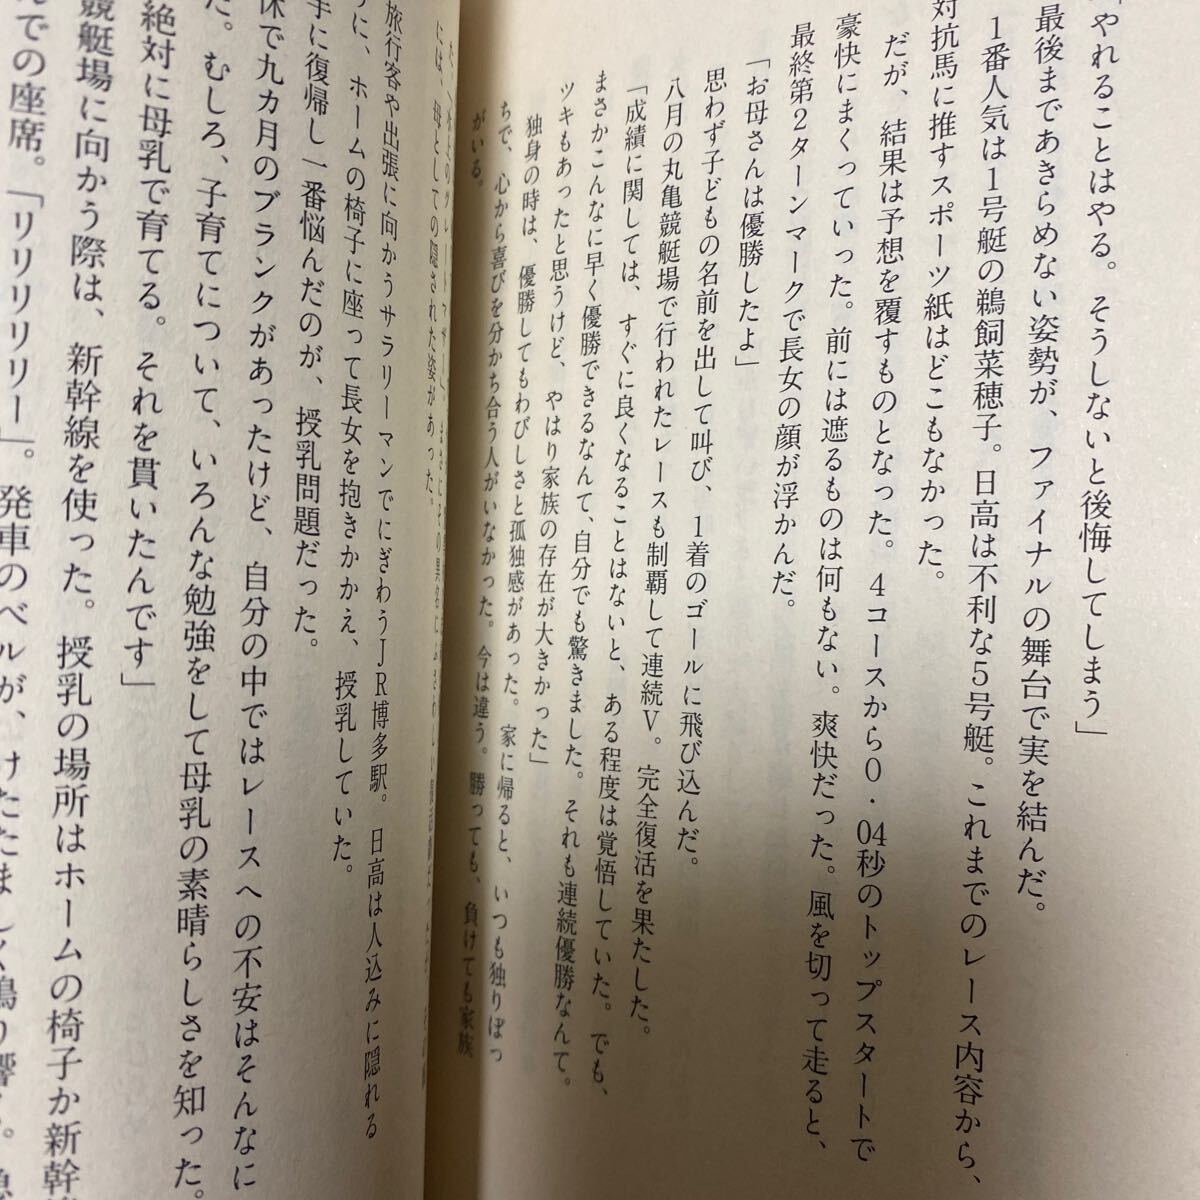 「やれることはやる。そうしないと後悔してしまう」
最後まであきらめない姿勢が、ファイナルの舞台で実を結んだ。
1番人気は1号艇の鵜飼菜穂子。日高は不利な5号艇。これまでのレース内容から、
対抗馬に推すスポーツ紙はどこもなかった。
だが、結果は予想を覆すものとなった。4コースから0・04秒のトップスタートで
豪快にまくっていった。前には遮るものは何もない。爽快だった。風を切って走ると、
最終第2ターンマークで長女の顔が浮かんだ。
「お母さんは優勝したよ」
思わず子どもの名前を出して叫び、1着のゴールに飛び込んだ。
八月の丸亀競艇場で行われたレースも制覇して連続V。完全復活を果たした。
「成績に関しては、すぐに良くなることはないと、ある程度は覚悟していた。でも、
まさかこんなに早く優勝できるなんて、自分でも驚きました。それも連続優勝なんて。
ツキもあったと思うけど、やはり家族の存在が大きかった」
独身の時は、優勝してもわびしさと孤独感があった。家に帰ると、いつも独りぼっ
ちで、心から喜びを分かち合う人がいなかった。今は違う。勝っても、負けても家族
がいる。
には、母としての隠された姿があった。
旅行客や出張に向かうサラリーマンでにぎわうJR博多駅。日高は人込みに隠れる
うに、ホームの椅子に座って長女を抱きかかえ、授乳していた。
手に復帰し一番悩んだのが、授乳問題だった。
休で九カ月のブランクがあったけど、自分の中ではレースへの不安はそんなに
た。むしろ、子育てについて、いろんな勉強をして母乳の素晴らしさを知った。
絶対に母乳で育てる。それを貫いたんです」
競艇場に向かう際は、新幹線を使った。授乳の場所はホームの椅子か新幹
での座席。「リリリリリー」。発車のベルが、けたたましく鳴り響く。